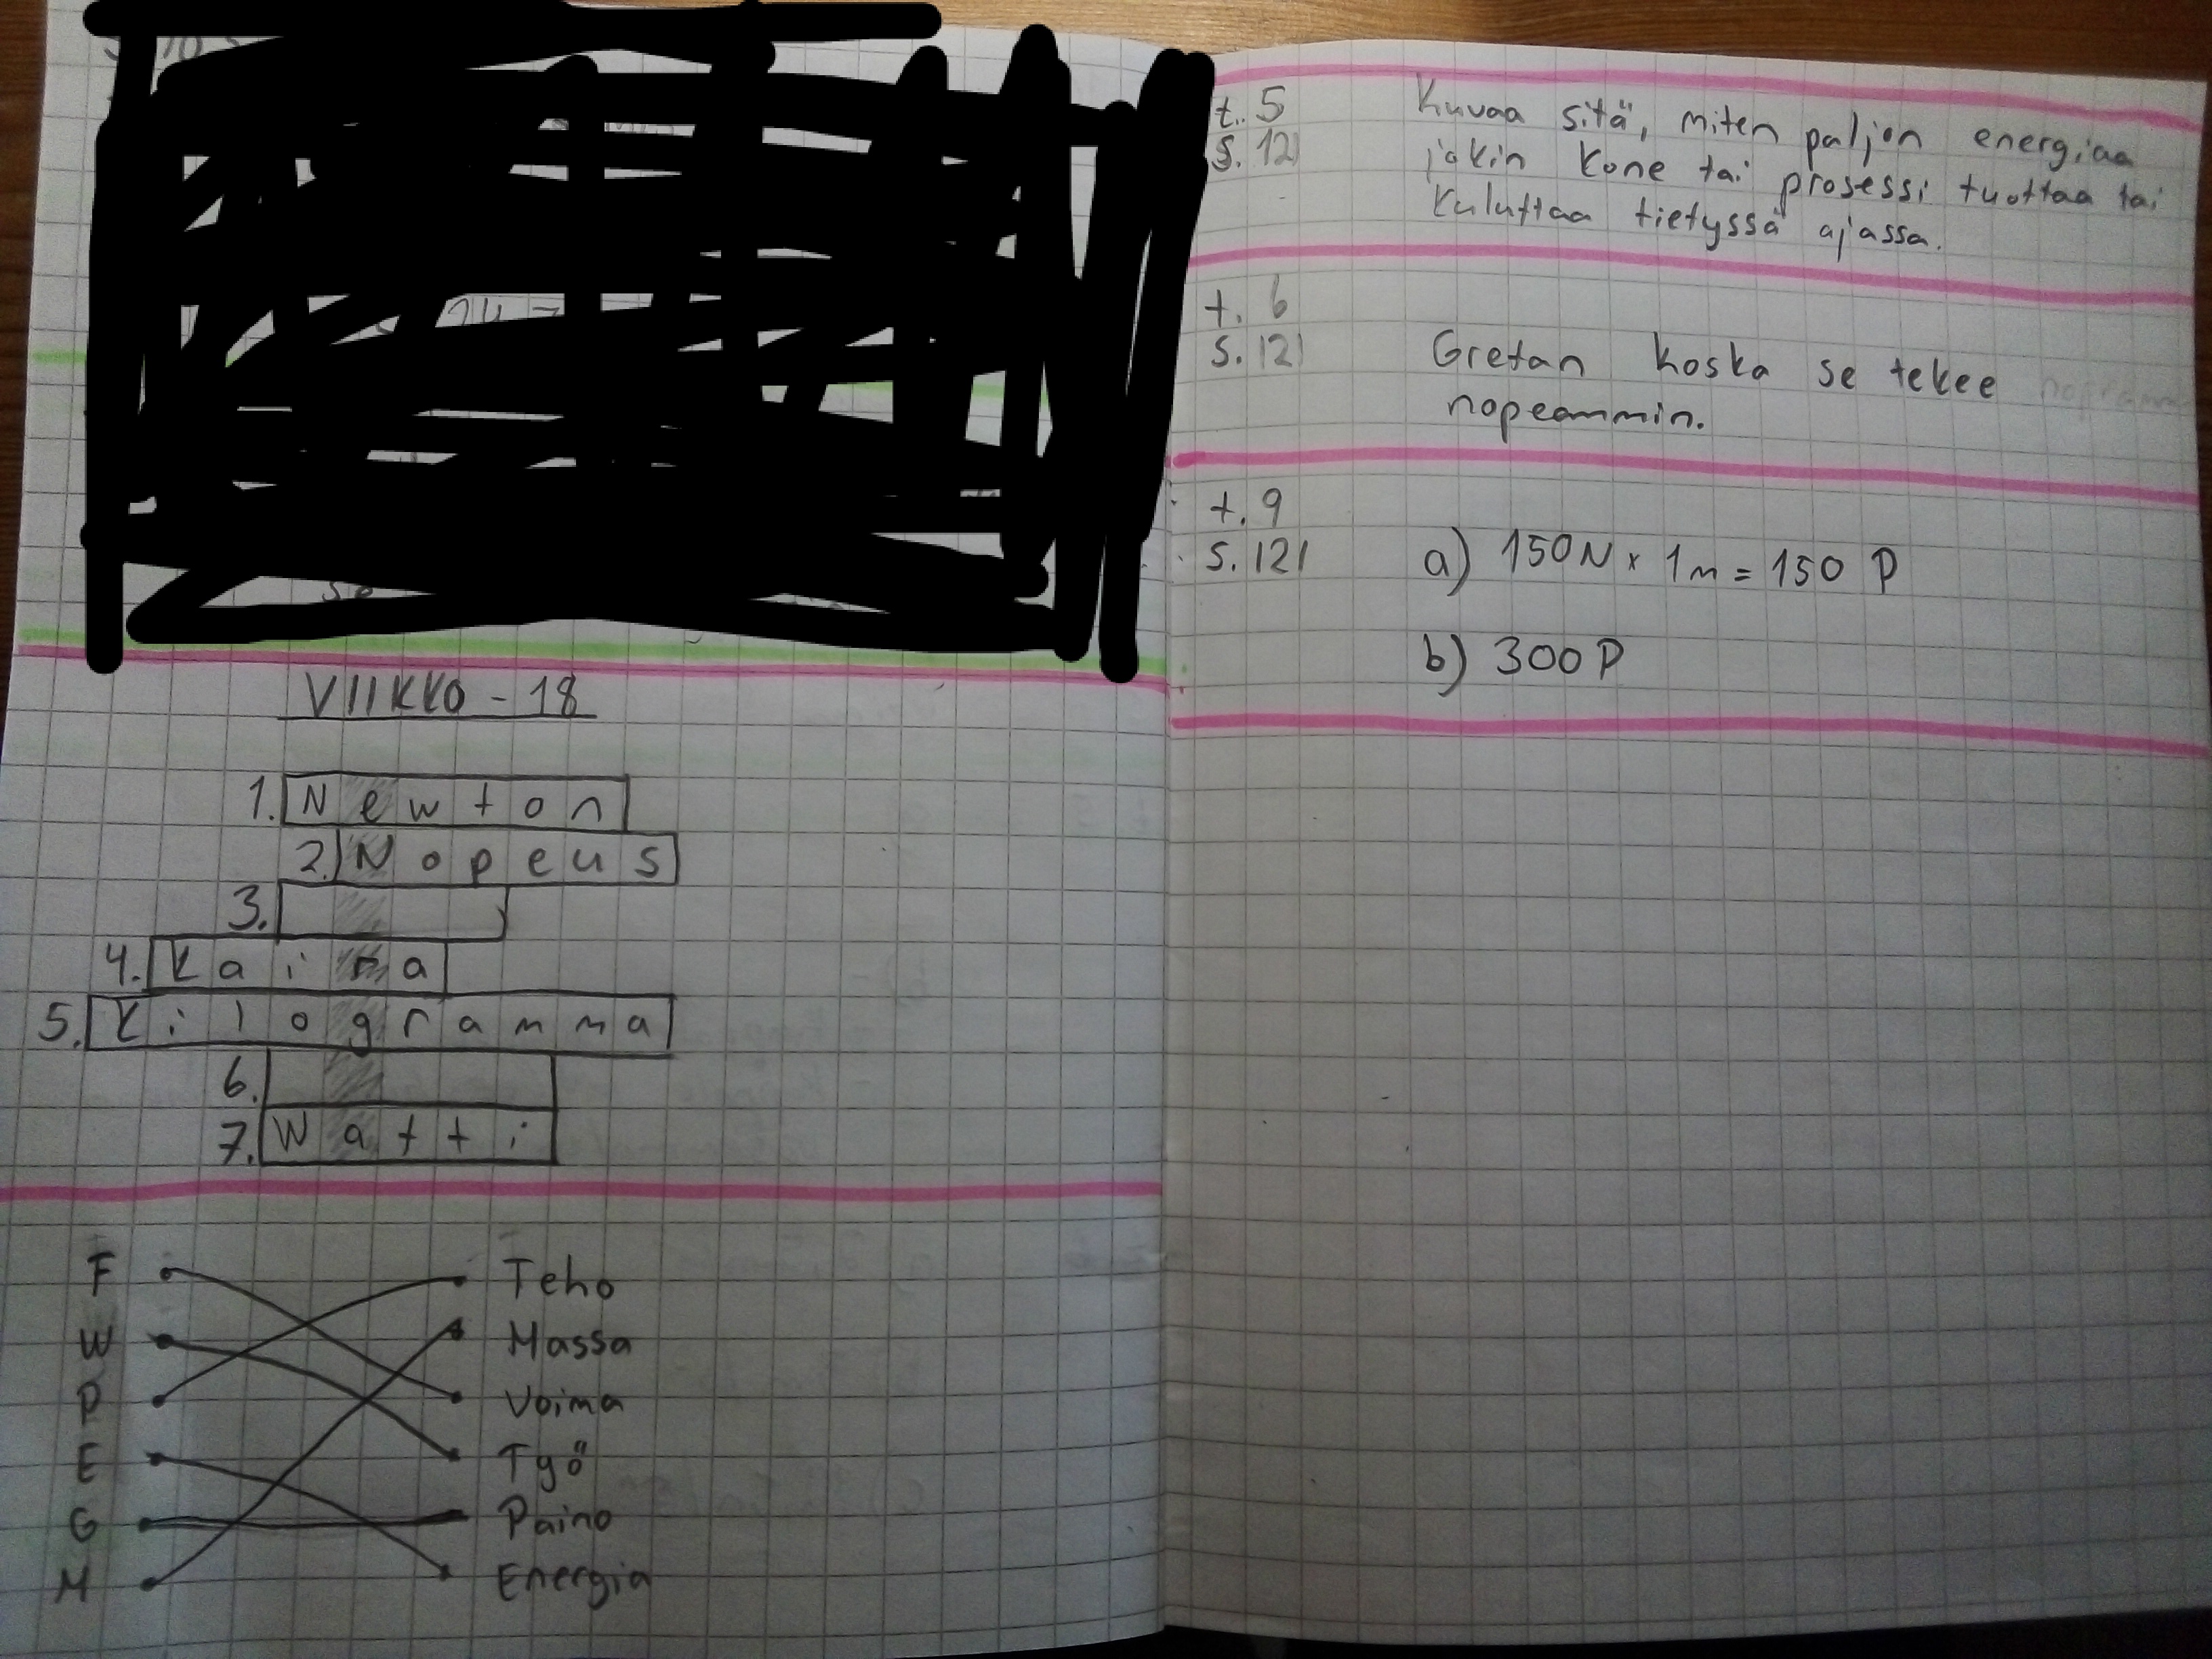 VIIKKO - 18
1. Newton
2. Nopeus
3.
4. Kaira
5. Kilogramma
6.
7. Watti
F Teho
W Massa
P Voima
E Työ
G Paino
M Energia
t. 5 Kuvaa sitä, miten paljon energiaa
s. 121 jokin kone tai prosessi tuottaa tai
kuluttaa tietyssä ajassa.
t. 6
s. 121 Gretan koska se tekee
nopeammin.
t. 9
s. 121 a) 150N x 1m = 150 P
b) 300P